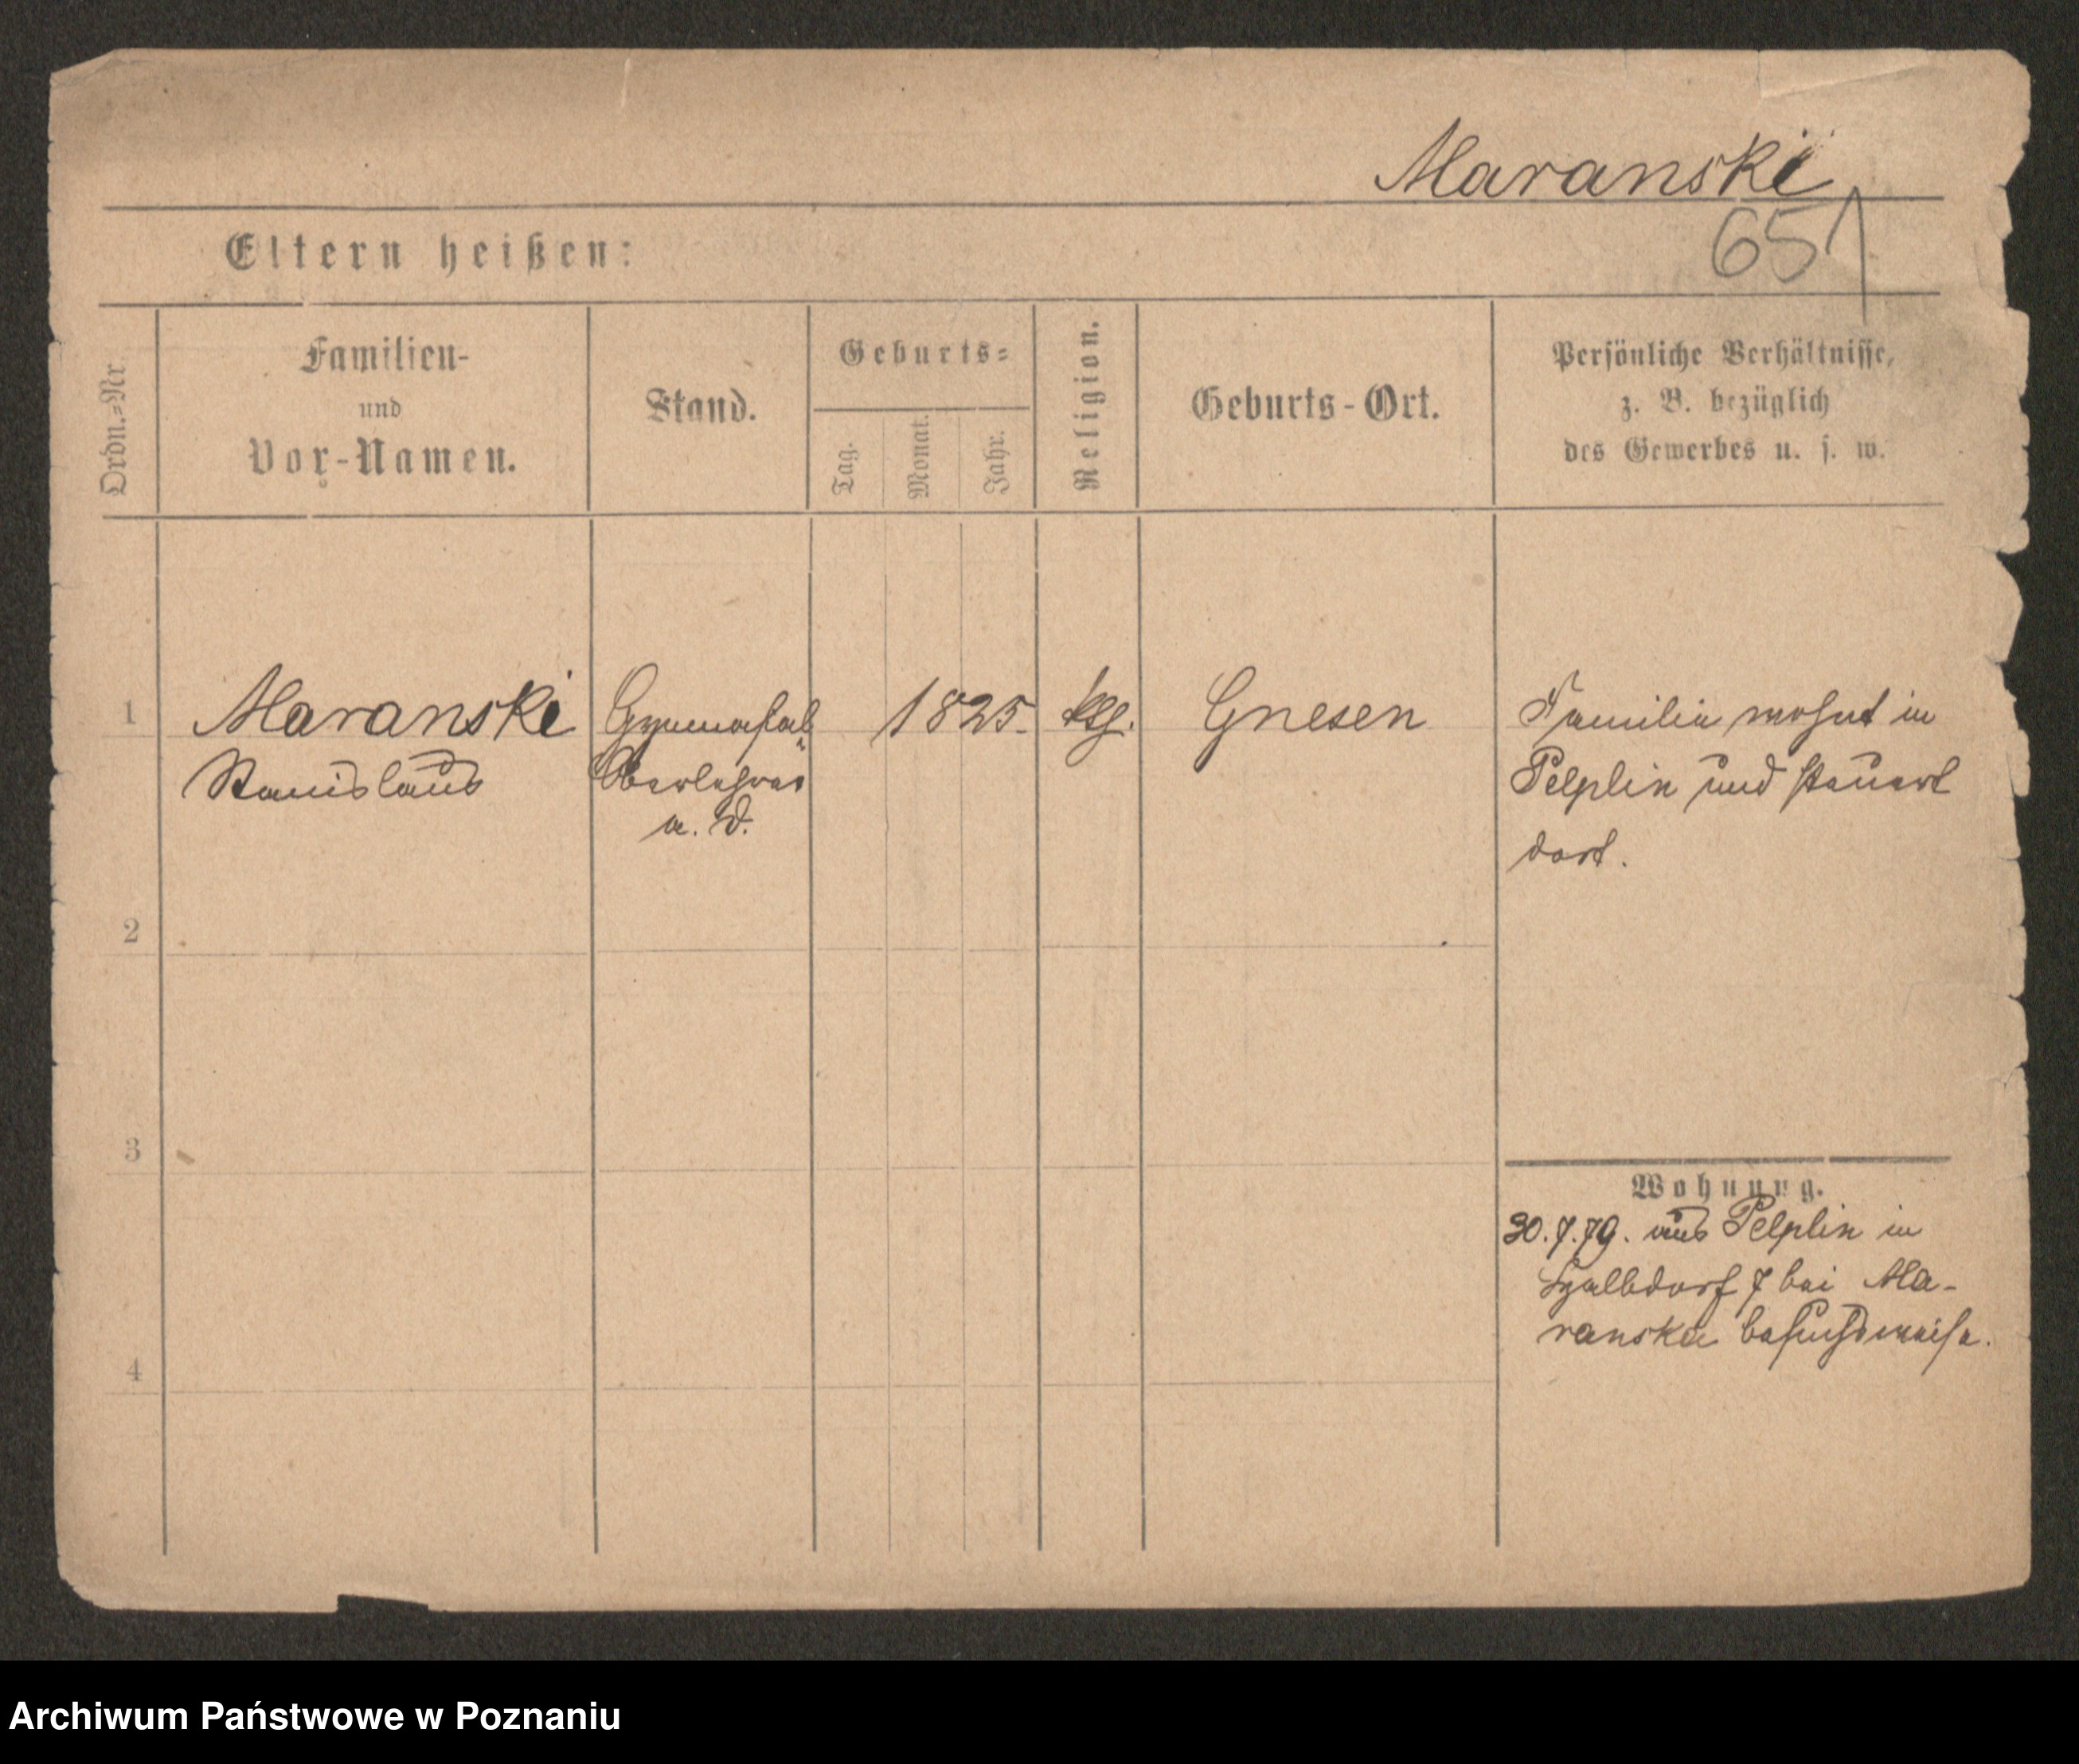 Maranski
651
Eltern heißen:
Ordn.-Nr.
Familien-
und
Vor-Namen.
Stand.
Geburts-
Tag.
Monat.
Jahr.
Religion.
Geburts-Ort.
Persönliche Verhältnisse,
z. B. bezüglich
des Gewerbes u. s. w.
1
Maranski
Stanislaus
Gymnasial
Oberlehrer
a. D.
1825.
Gnesen
Familie wohnt in
Pelplin und steuert
dort.
2
3
4
Wohnung.
30.7.79. aus Pelplin in
7 bei Ma-
ranska besuchsweise.
Archiwum Państwowe w Poznaniu